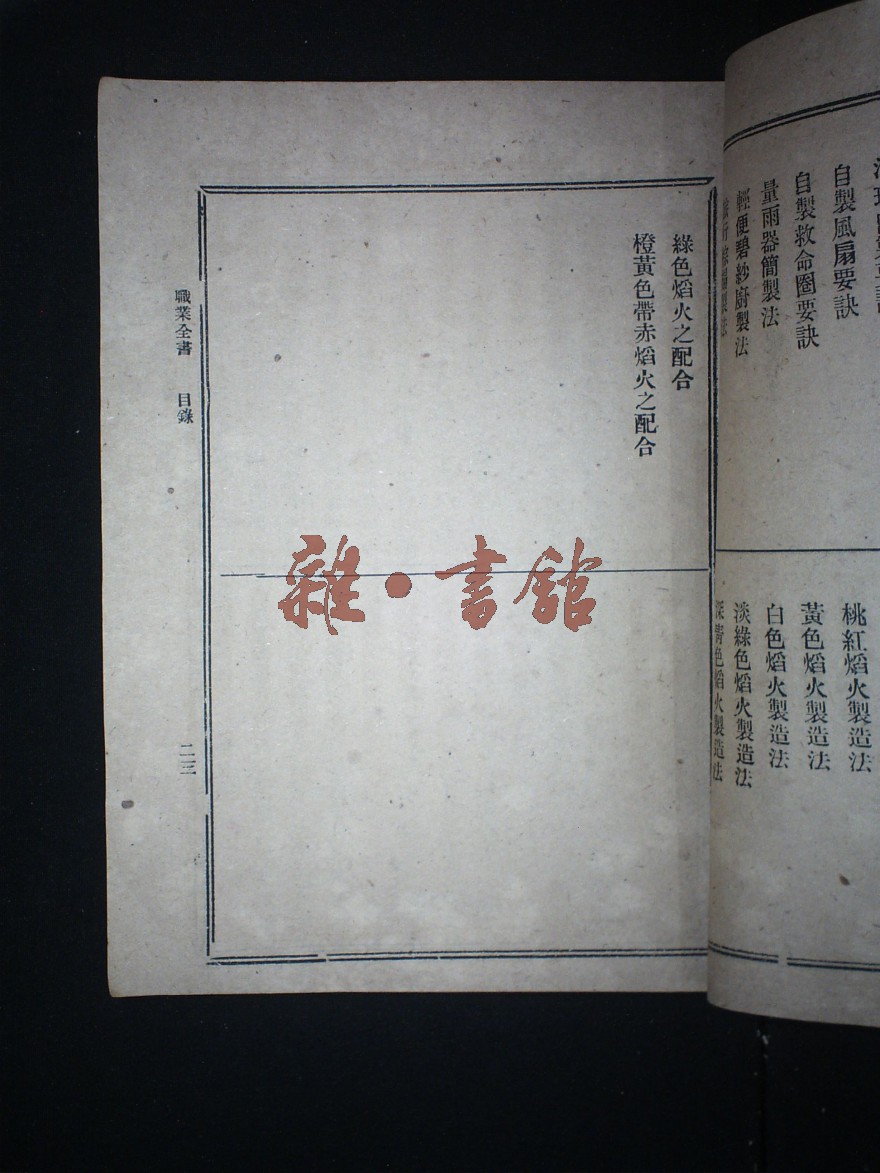 自製風扇要訣
自製救命圈要訣
量雨器簡製法
輕便碧紗廚製法
桃紅熖火製造法
黃色熖火製造法
白色熖火製造法
淡綠色熖火製造法
深青色熖火製造法
綠色熖火之配合
橙黃色帶赤熖火之配合
職業全書 目錄
二三
雜·書館